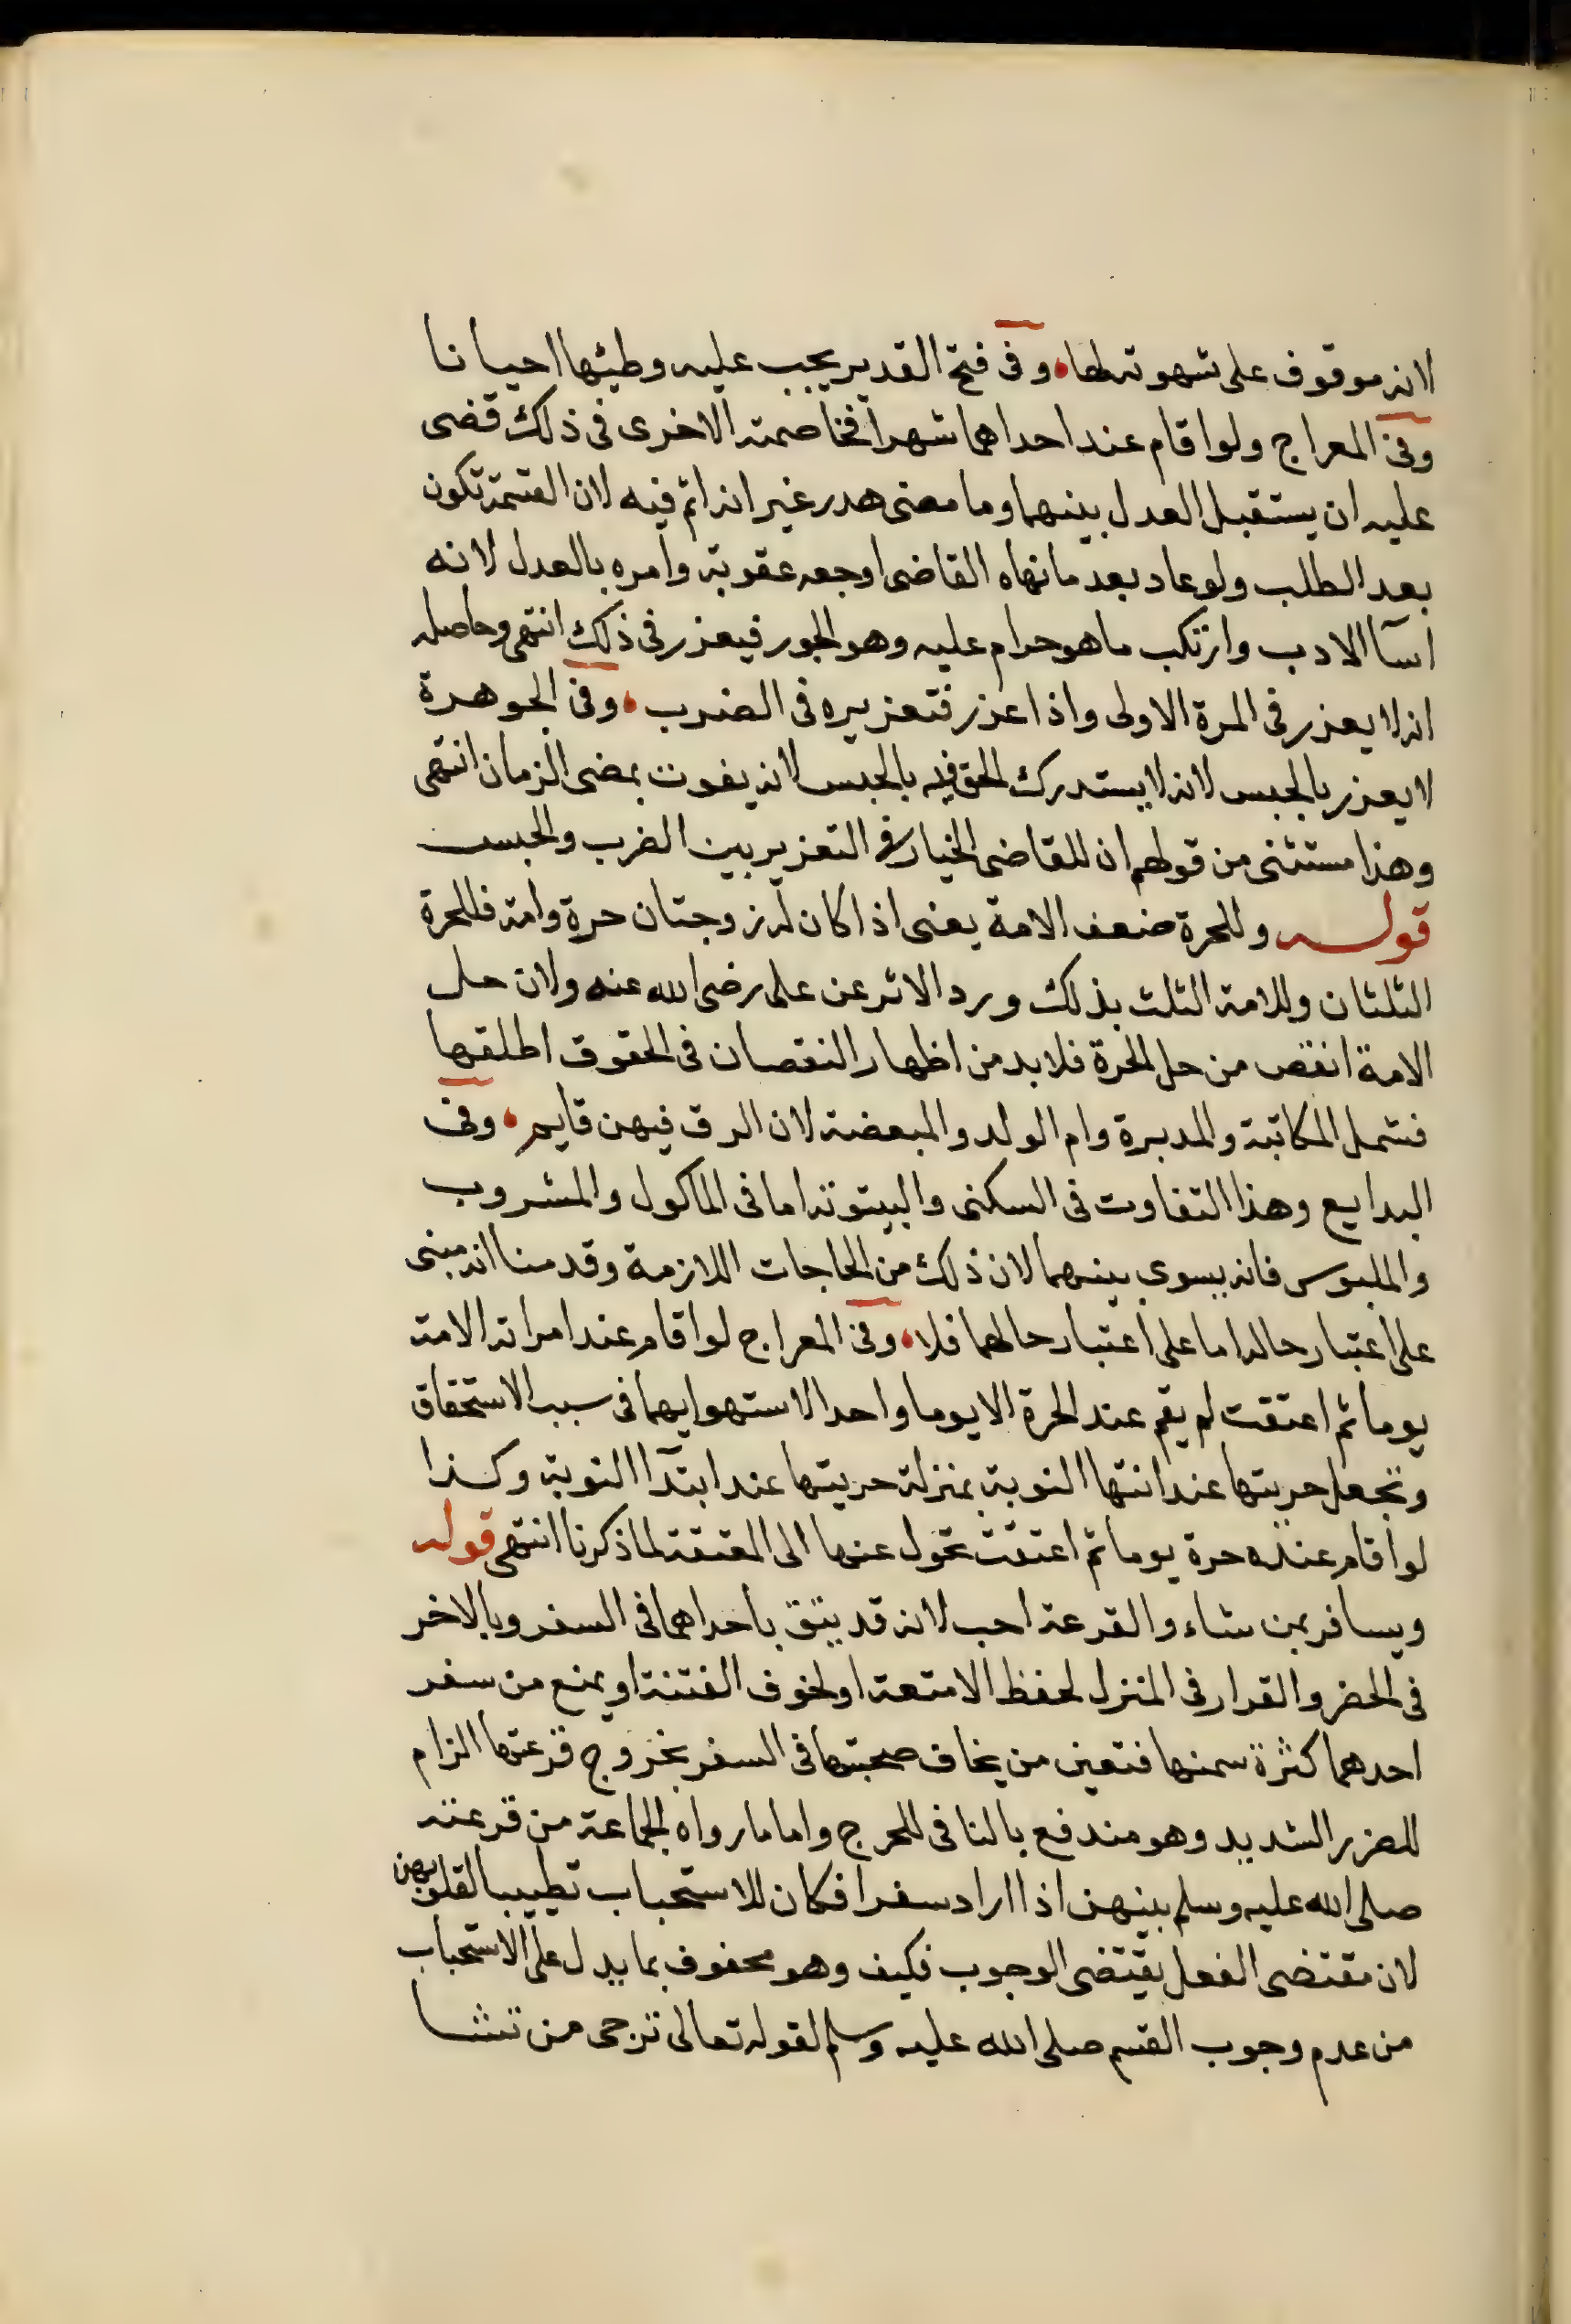 لانه موقوف على شهوته لها، وفى فتح القدير يجب عليه وطيئها احيانا
وفى المعراج ولو اقام عند احداهما شهرا فخاصمته الاخرى فى ذلك قضى
عليه ان يستقبل العدل بينهما وما مضى هدر غير انه اثم فيه لان القسمة تكون
بعد الطلب ولو عاد بعد مانهاه القاضى اوجعه عقوبة وامره بالعدل لانه
اسآ الادب وارتكب ما هو حرام عليه وهو الجور فيعزر فى ذلك انتهى وحاصله
انه لا يعزر فى المرة الاولى واذا عزر فتعزيره فى الضرب، وفى الجوهرة
لا يعزر بالحبس لانه لا يستدرك الحق فيه بالحبس لانه يفوت بمضى الزمان انتهى
وهذا مستثنى من قولهم ان للقاضى الخيار فى التعزير بين الضرب والحبس
قوله وللحرة ضعف الامة يعنى اذا كان له زوجتان حرة وامة فللحرة
الثلثان وللامة الثلث بذلك ورد الاثر عن على رضى الله عنه ولان حل
الامة انقص من حل الحرة فلا بد من اظهار النقصان فى الحقوق اطلقها
فشمل المكاتبة والمدبرة وام الولد والمبعضة لان الرق فيهن قايم، وفى
البدايع وهذا التفاوت فى السكنى والبيتوتة اما فى الماكول والمشروب
والملبوس فانه يسوى بينهما لان ذلك من الحاجات اللازمة وقدمنا انه مبنى
على اعتبار حاله اما على اعتبار حالهما فلا، وفى المعراج لو اقام عند امراته الامة
يوما ثم اعتقت لم يقم عند الحرة الا يوما واحدا لاستهوايهما فى سبب الاستحقاق
وتجعل حريتها عند انتها النوبة بمنزلة حريتها عند ابتدآ النوبة وكذا
لو اقام عنده حرة يوما ثم اعتقت تحول عنها الى المعتقة لما ذكرنا انتهى قوله
ويسافر بمن شاء والقرعة احب لانه قد يثق باحداهما فى السفر وبالاخر
فى الحضر والقرار فى المنزل لحفظ الامتعة او لخوف الفتنة او يمنع من سفر
احدهما كثرة سمنها فتعين من يخاف صحبتها فى السفر بخروج قرعتها الزام
للضرر الشديد وهو مندفع بالنافى للحرج واما ما رواه الجماعة من قرعته
صلى الله عليه وسلم بينهن اذا اراد سفرا فكان للاستحباب تطييبا لقلوبهن
لان مقتضى الفعل يقتضى الوجوب فكيف وهو محفوف بما يدل على الاستحباب
من عدم وجوب القسم صلى الله عليه وسلم لقوله تعالى ترجى من تشا